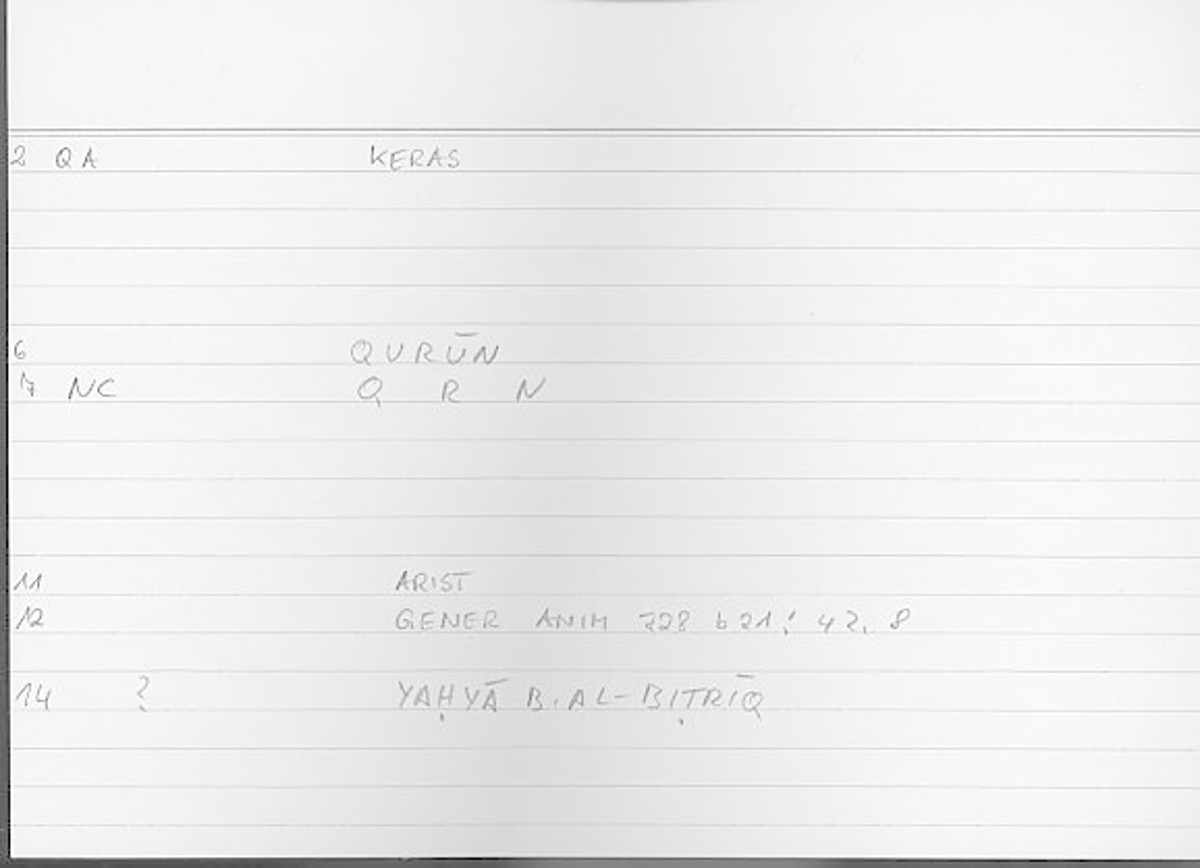 2 QA KERAS
6 QURŪN
7 NC Q R N
11 ARIST
12 GENER ANIM 728 b 21; 42, 8
14 ? YAḤYĀ B. AL-BIṬRĪQ